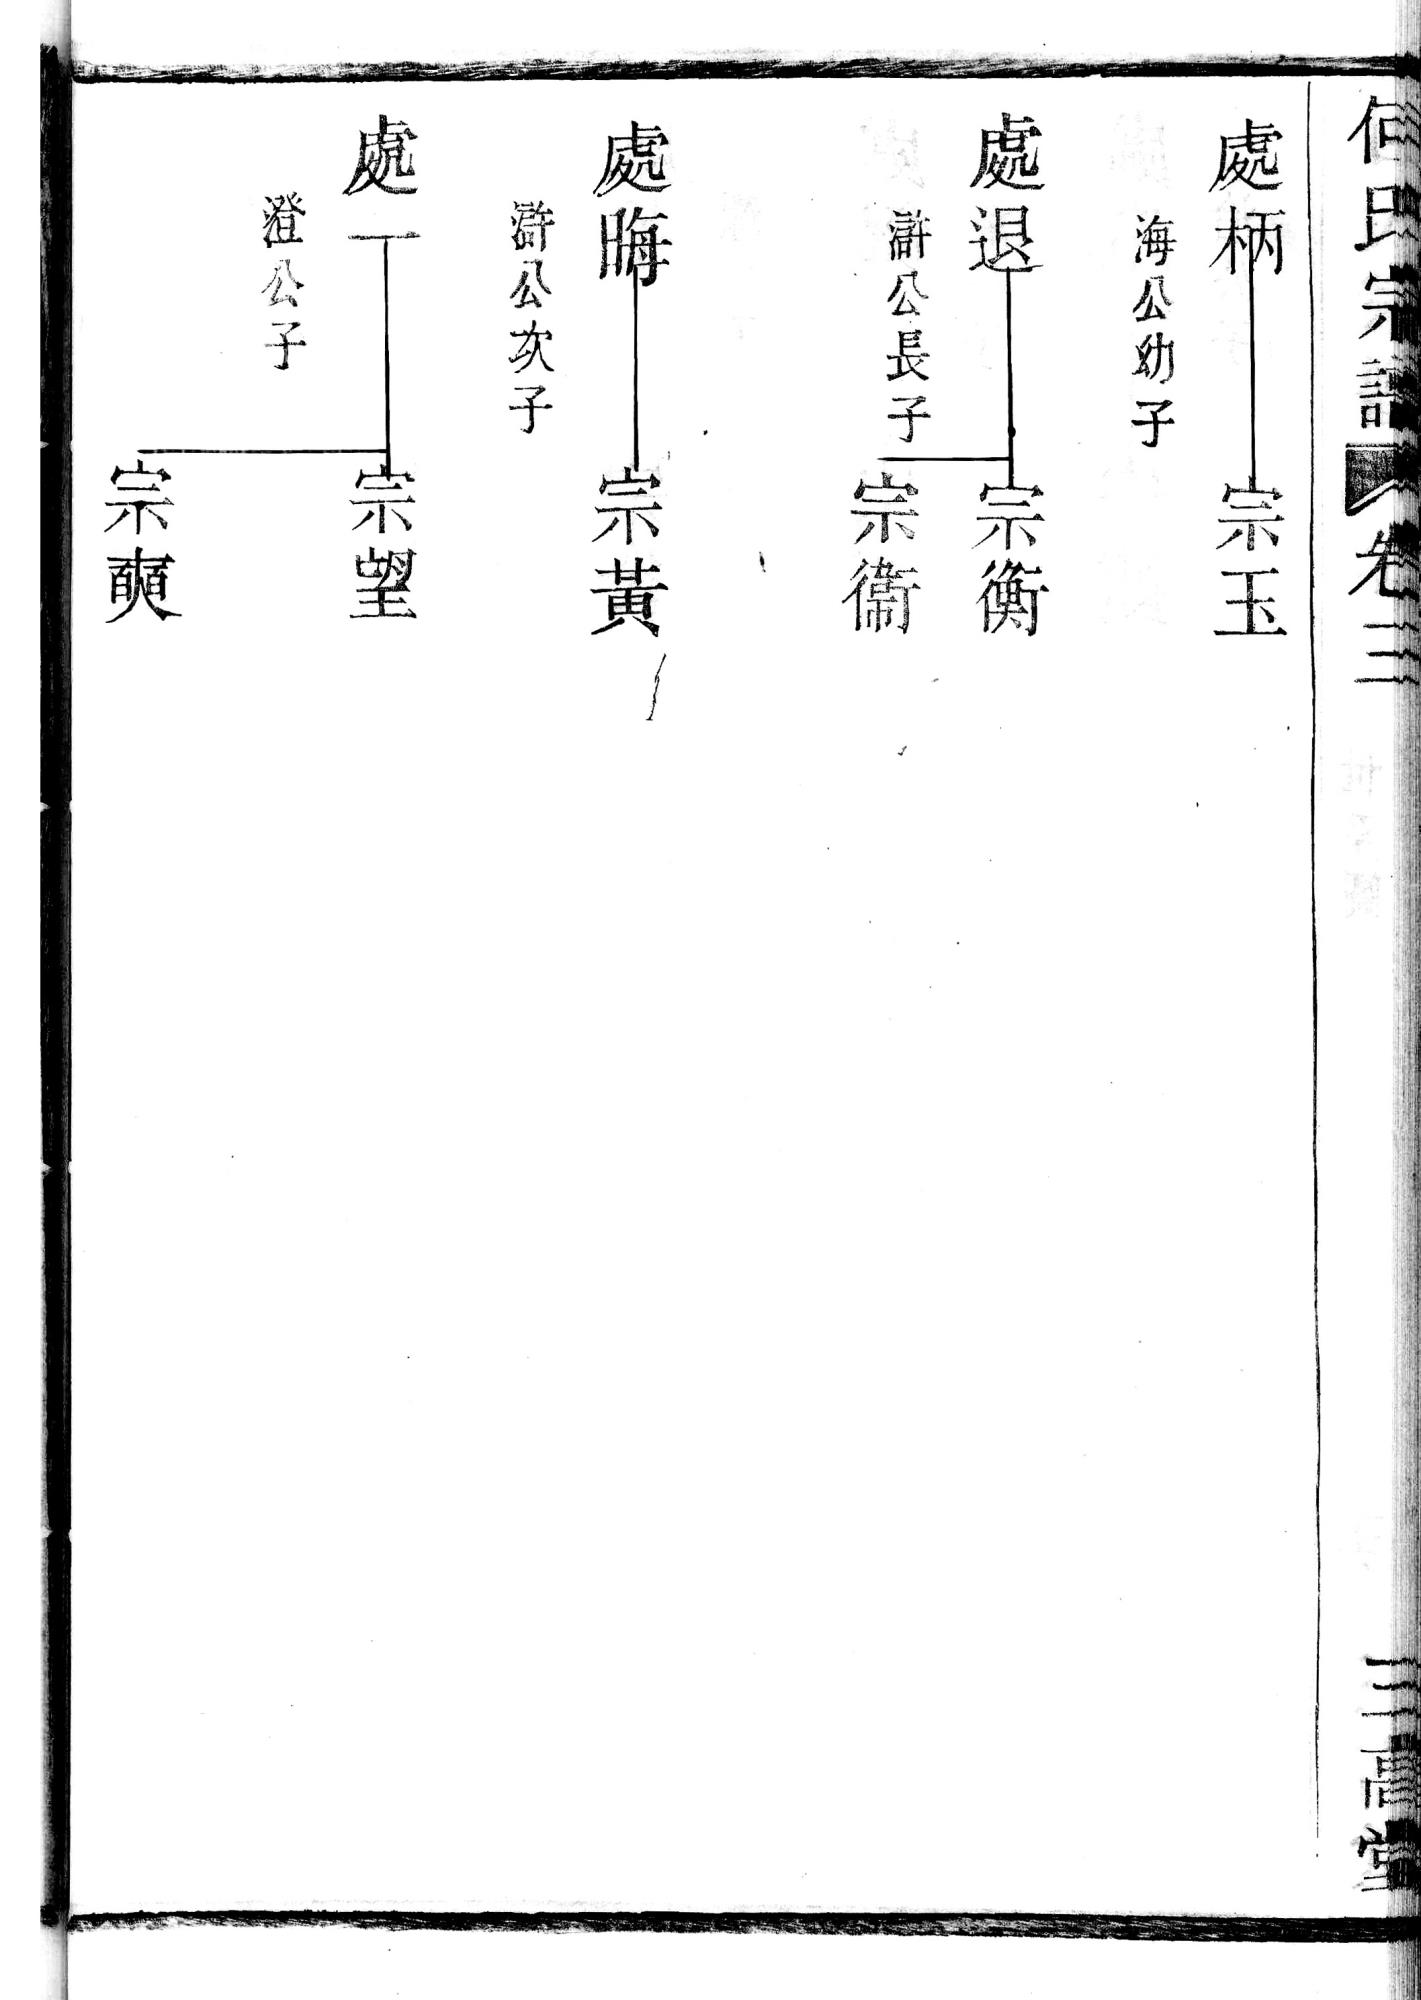 何氏宗譜 卷三 三高堂
處柄 宗玉
海公幼子
處退 宗衡
滸公長子
宗衞
處晦 宗黃
滸公次子
處一 宗望
澄公子
宗奭